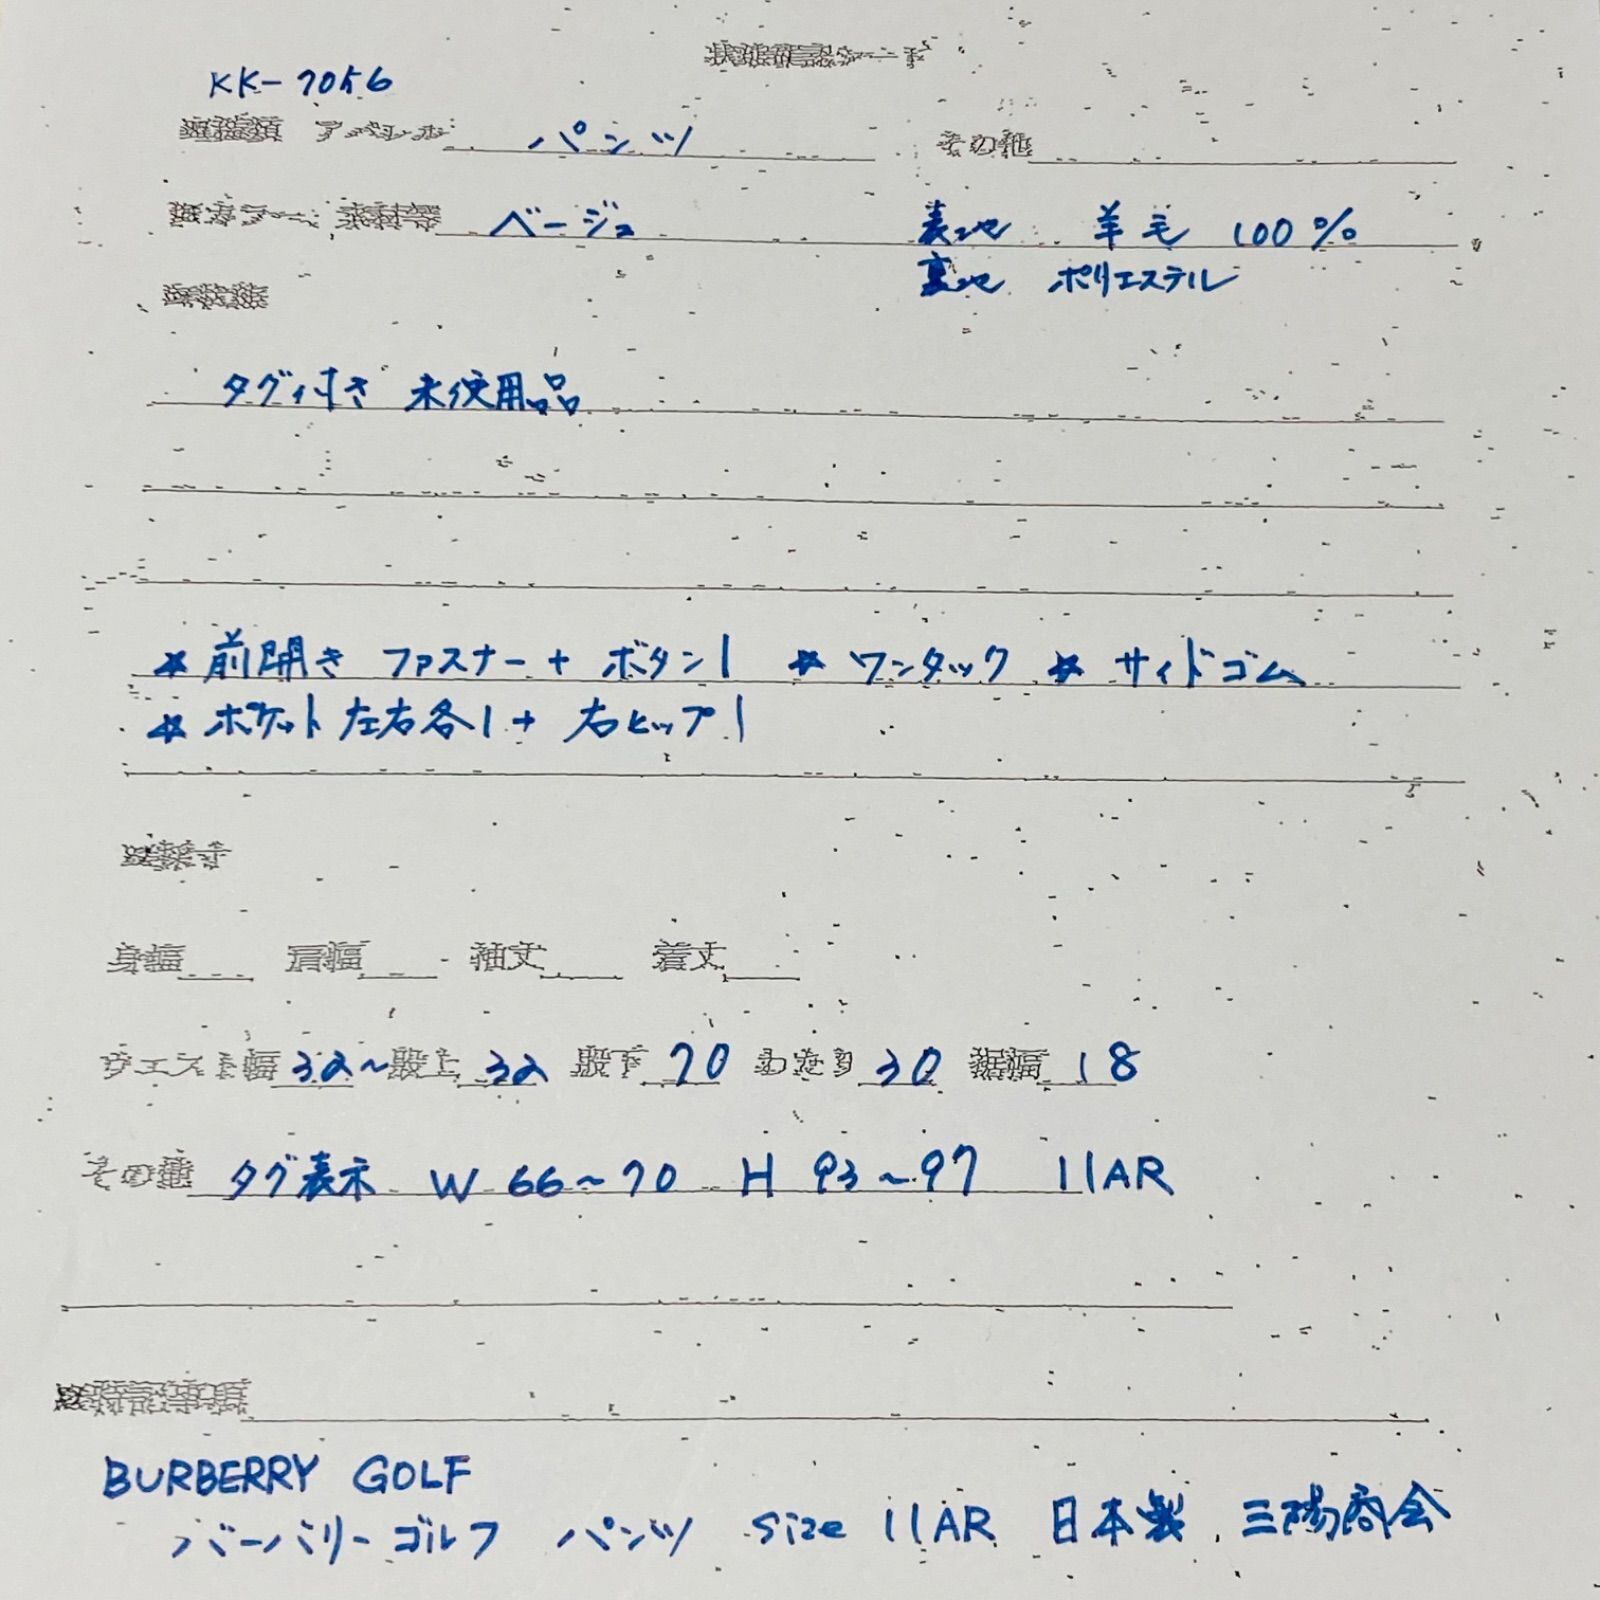 状態確認シート
KK-7056
アパレル パンツ その他
ベージュ 表地 羊毛 100%
裏地 ポリエステル
タグ付き 未使用品
☆前開き ファスナー+ボタン1 ☆ワンタック ☆サイドゴム
☆ポケット左右各1+右ヒップ1
採寸
身幅 肩幅 袖丈 着丈
ウエスト幅 32~ 股上 32 股下 70 わたり 30 裾幅 18
その他 タグ表示 W 66~70 H 93~97 11AR
特記事項
BURBERRY GOLF
バーバリーゴルフ パンツ size 11AR 日本製 三陽商会